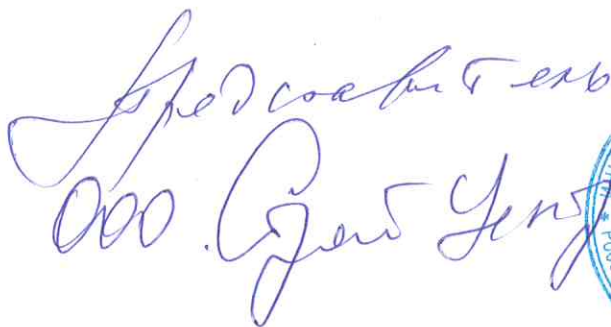 Представитель
ООО. Строй Центр